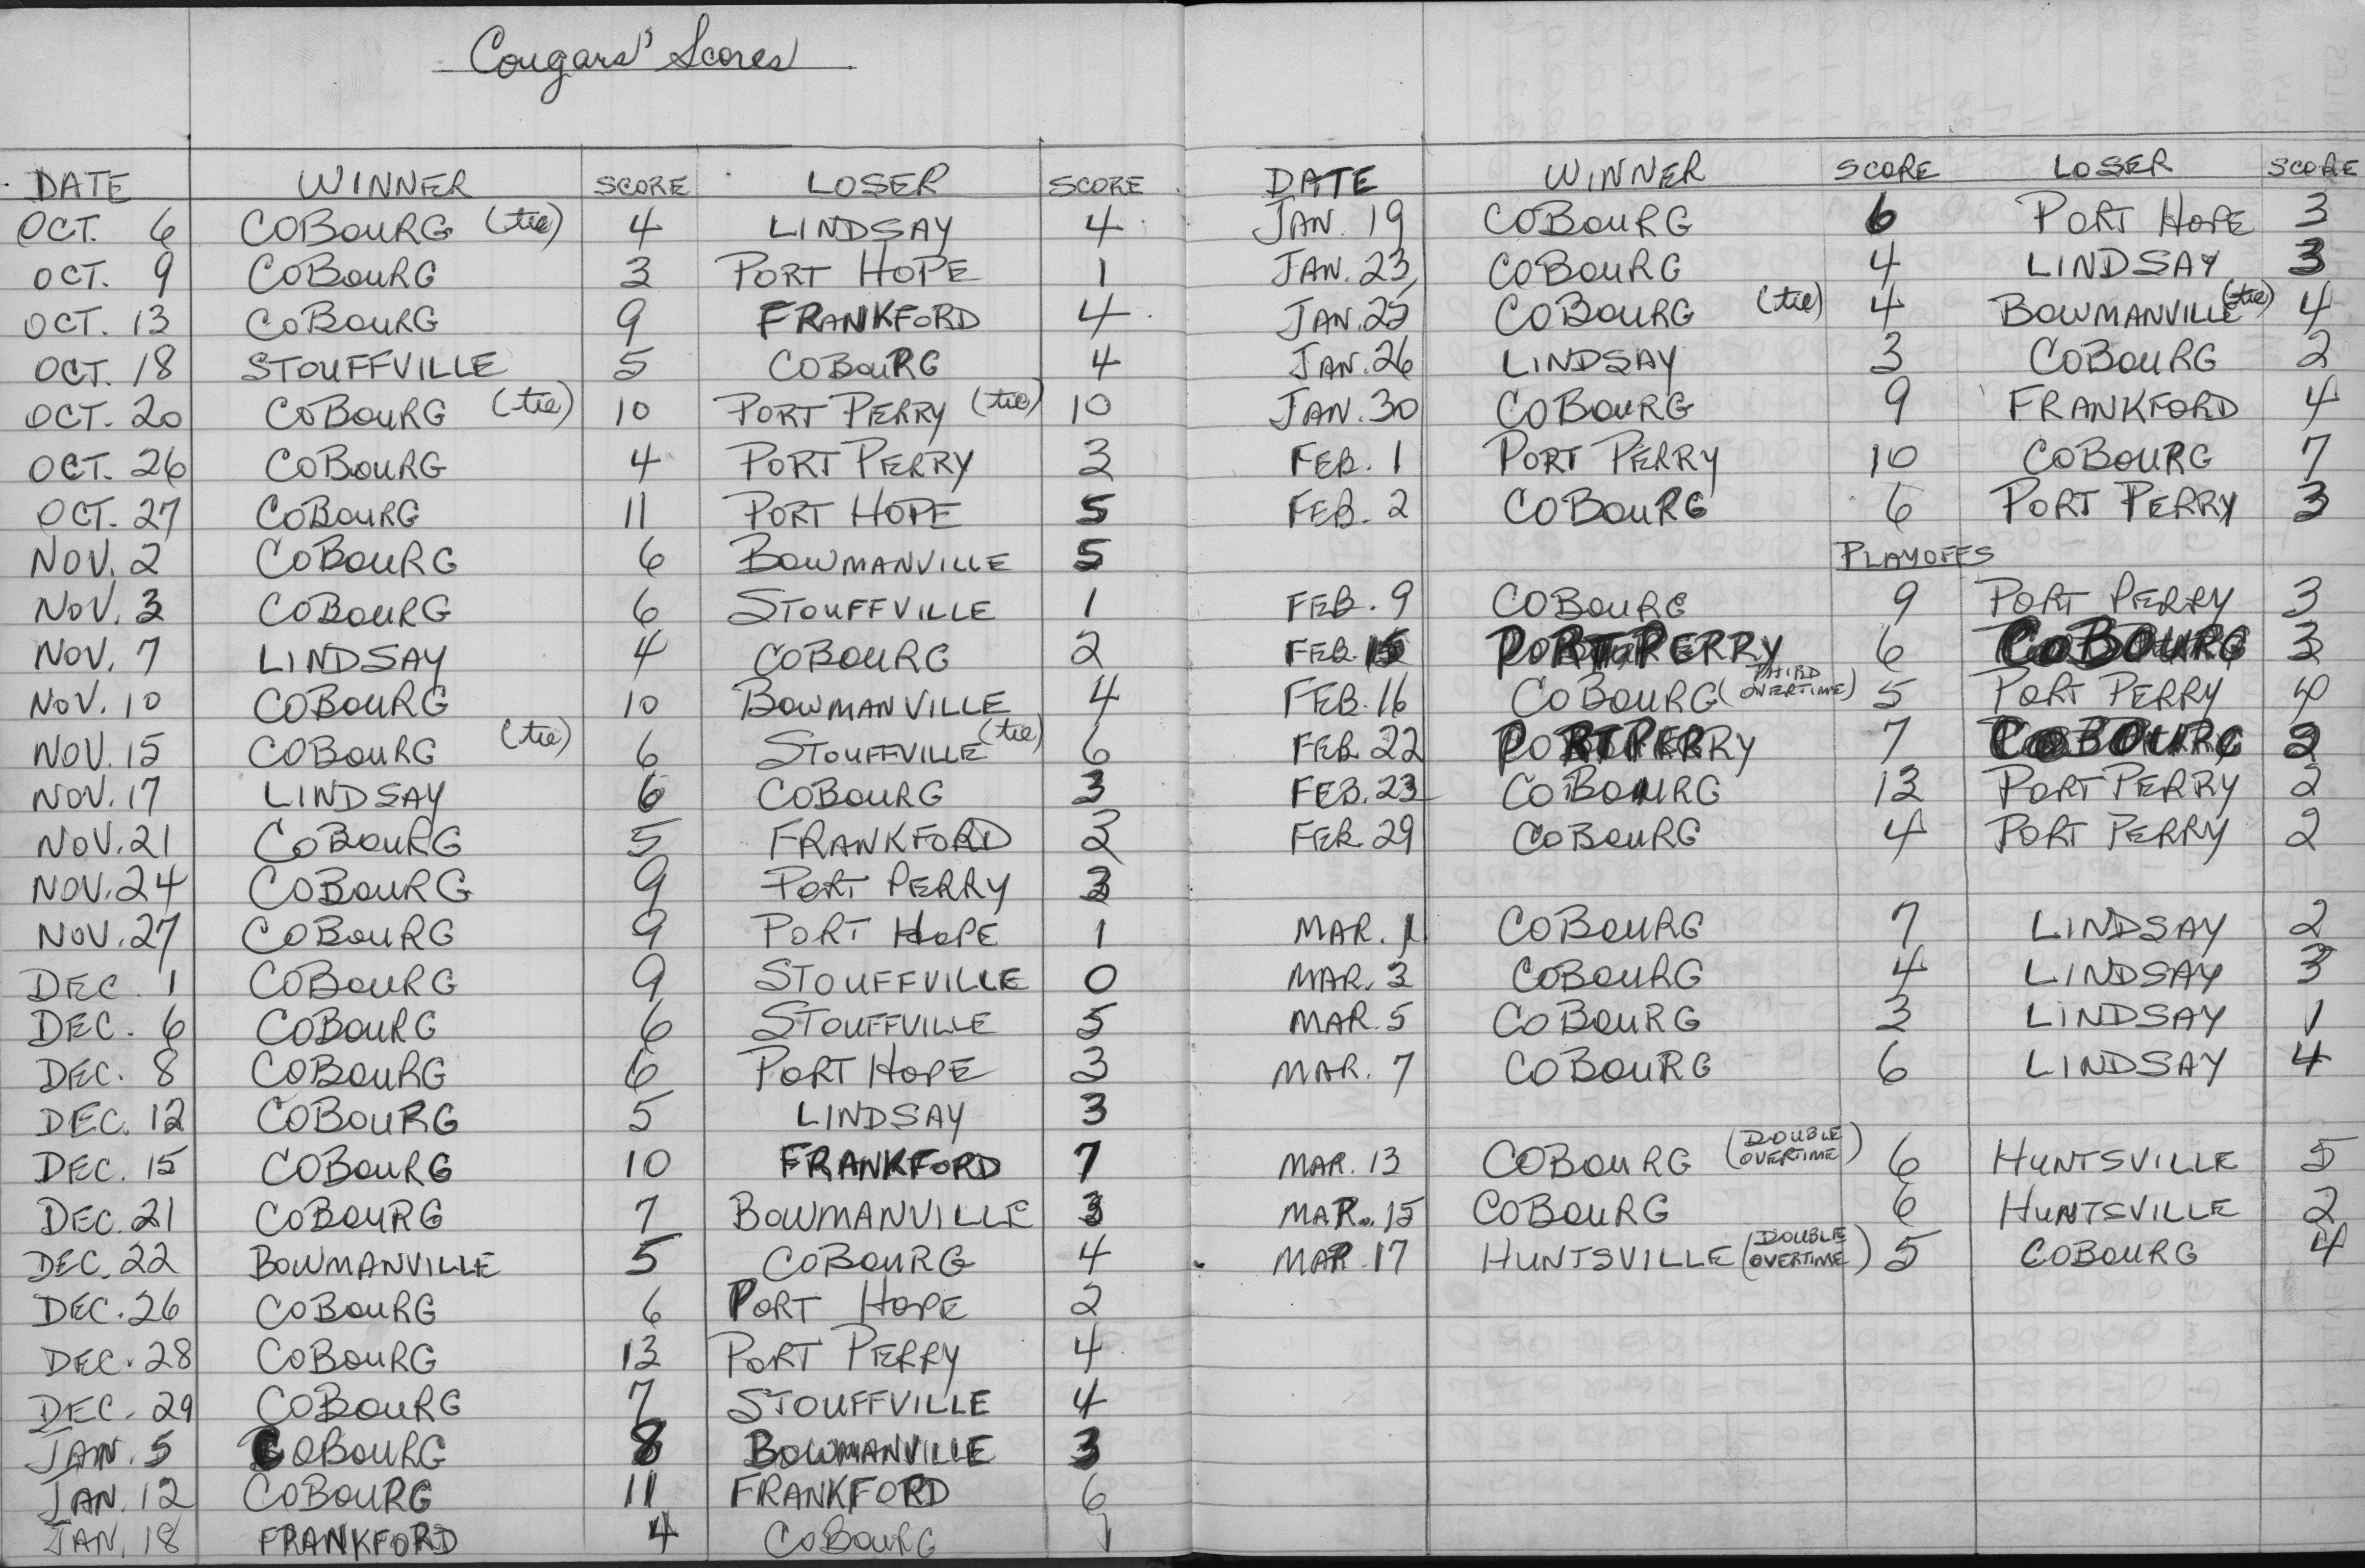 Cougars' Scores
DATE WINNER SCORE LOSER SCORE
OCT. 6 COBOURG (tie) 4 LINDSAY 4
OCT. 9 COBOURG 3 PORT HOPE 1
OCT. 13 COBOURG 9 FRANKFORD 4
OCT. 18 STOUFFVILLE 5 COBOURG 4
OCT. 20 COBOURG (tie) 10 PORT PERRY (tie) 10
OCT. 26 COBOURG 4 PORT PERRY 3
OCT. 27 COBOURG 11 PORT HOPE 5
NOV. 2 COBOURG 6 BOWMANVILLE 5
NOV. 3 COBOURG 6 STOUFFVILLE 1
NOV. 7 LINDSAY 4 COBOURG 2
NOV. 10 COBOURG 10 BOWMANVILLE 4
NOV. 15 COBOURG (tie) 6 STOUFFVILLE (tie) 6
NOV. 17 LINDSAY 6 COBOURG 3
NOV. 21 COBOURG 5 FRANKFORD 2
NOV. 24 COBOURG 9 PORT PERRY 3
NOV. 27 COBOURG 9 PORT HOPE 1
DEC. 1 COBOURG 9 STOUFFVILLE 0
DEC. 6 COBOURG 6 STOUFFVILLE 5
DEC. 8 COBOURG 6 PORT HOPE 3
DEC. 12 COBOURG 5 LINDSAY 3
DEC. 15 COBOURG 10 FRANKFORD 7
DEC. 21 COBOURG 7 BOWMANVILLE 3
DEC. 22 BOWMANVILLE 5 COBOURG 4
DEC. 26 COBOURG 6 PORT HOPE 2
DEC. 28 COBOURG 13 PORT PERRY 4
DEC. 29 COBOURG 7 STOUFFVILLE 4
JAN. 5 COBOURG 8 BOWMANVILLE 3
JAN. 12 COBOURG 11 FRANKFORD 6
JAN. 18 FRANKFORD 4 COBOURG 1
DATE WINNER SCORE LOSER SCORE
JAN. 19 COBOURG 6 PORT HOPE 3
JAN. 23 COBOURG 4 LINDSAY 3
JAN. 25 COBOURG (tie) 4 BOWMANVILLE (tie) 4
JAN. 26 LINDSAY 3 COBOURG 2
JAN. 30 COBOURG 9 FRANKFORD 4
FEB. 1 PORT PERRY 10 COBOURG 7
FEB. 2 COBOURG 6 PORT PERRY 3
PLAYOFFS
FEB. 9 COBOURG 9 PORT PERRY 3
FEB. 15 PORT PERRY 6 COBOURG 3
FEB. 16 COBOURG (THIRD OVERTIME) 5 PORT PERRY 4
FEB. 22 PORT PERRY 7 COBOURG
FEB. 23 COBOURG 13 PORT PERRY 2
FEB. 29 COBOURG 4 PORT PERRY 2
MAR. 1 COBOURG 7 LINDSAY 2
MAR. 3 COBOURG 4 LINDSAY 3
MAR. 5 COBOURG 3 LINDSAY 1
MAR. 7 COBOURG 6 LINDSAY 4
MAR. 13 COBOURG (DOUBLE OVERTIME) 6 HUNTSVILLE 5
MAR. 15 COBOURG 6 HUNTSVILLE 2
MAR. 17 HUNTSVILLE (DOUBLE OVERTIME) 5 COBOURG 4